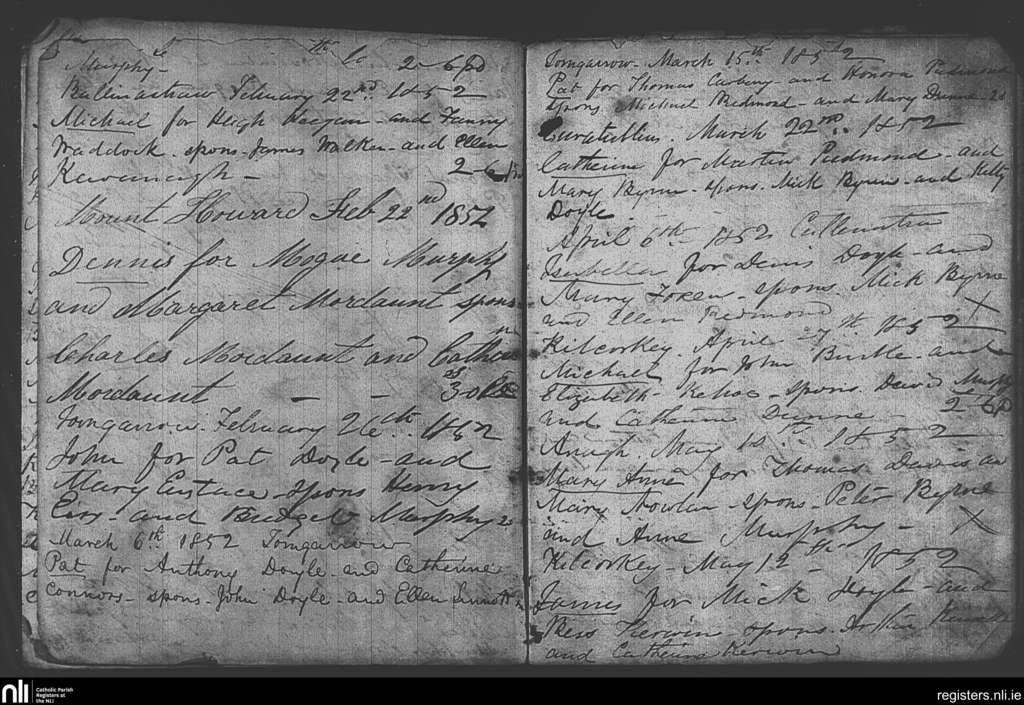 Murphy - 2-6 pd
Ballinastraw Febuary 22nd. 1852
Michael for Hugh Keegan - and Fanny
Waddock. spons. James Walker - and Ellen
Kavenagh - 2-6
Mount Howard Feb 22nd 1852
Dennis for Mogue Murphy
and Margaret Mordaunt spons
Charles Mordaunt and Cathn
Mordaunt - - 3s 0
Tomgarrow. February 26th. 1852
John for Pat Doyle - and
Mary Eustace - spons Henry
and Bridget Murphy 2s
March 6th 1852 Tomgarrow
Pat for Anthony Doyle - and Catherine
Connors - spons. John Doyle - and Ellen Sinnott
Tomgarrow - March 15th. 1852
Pat for Thomas - and Honora Redmond
spons Michael Redmond - and Mary Dunne 2s
March 22nd. 1852
Catherine for Martin Redmond - and
Mary Byrne - spons. Mick Byrne - and Kitty
Doyle
April 6th - 1852
Isabella for Denis Doyle - and
Mary - spons. Mick Byrne
and Ellen Redmond X
Kilcorkey. April 7th. 1852
Michael for John Burke - and
Elizabeth Kehoe - spons. David Murphy
and Catherine Dunne - 2-6 pd
May 1852
Mary Anne for Thomas Davis an
Mary Nowlan spons - Peter Byrne
and Anne Murphy - X
Kilcorkey - May 12th - 1852
James for Mick Doyle - and
Bess Kerwin spons.
and Catherine Kerwin
nli
Catholic Parish
Registers at
the NLI
registers.nli.ie